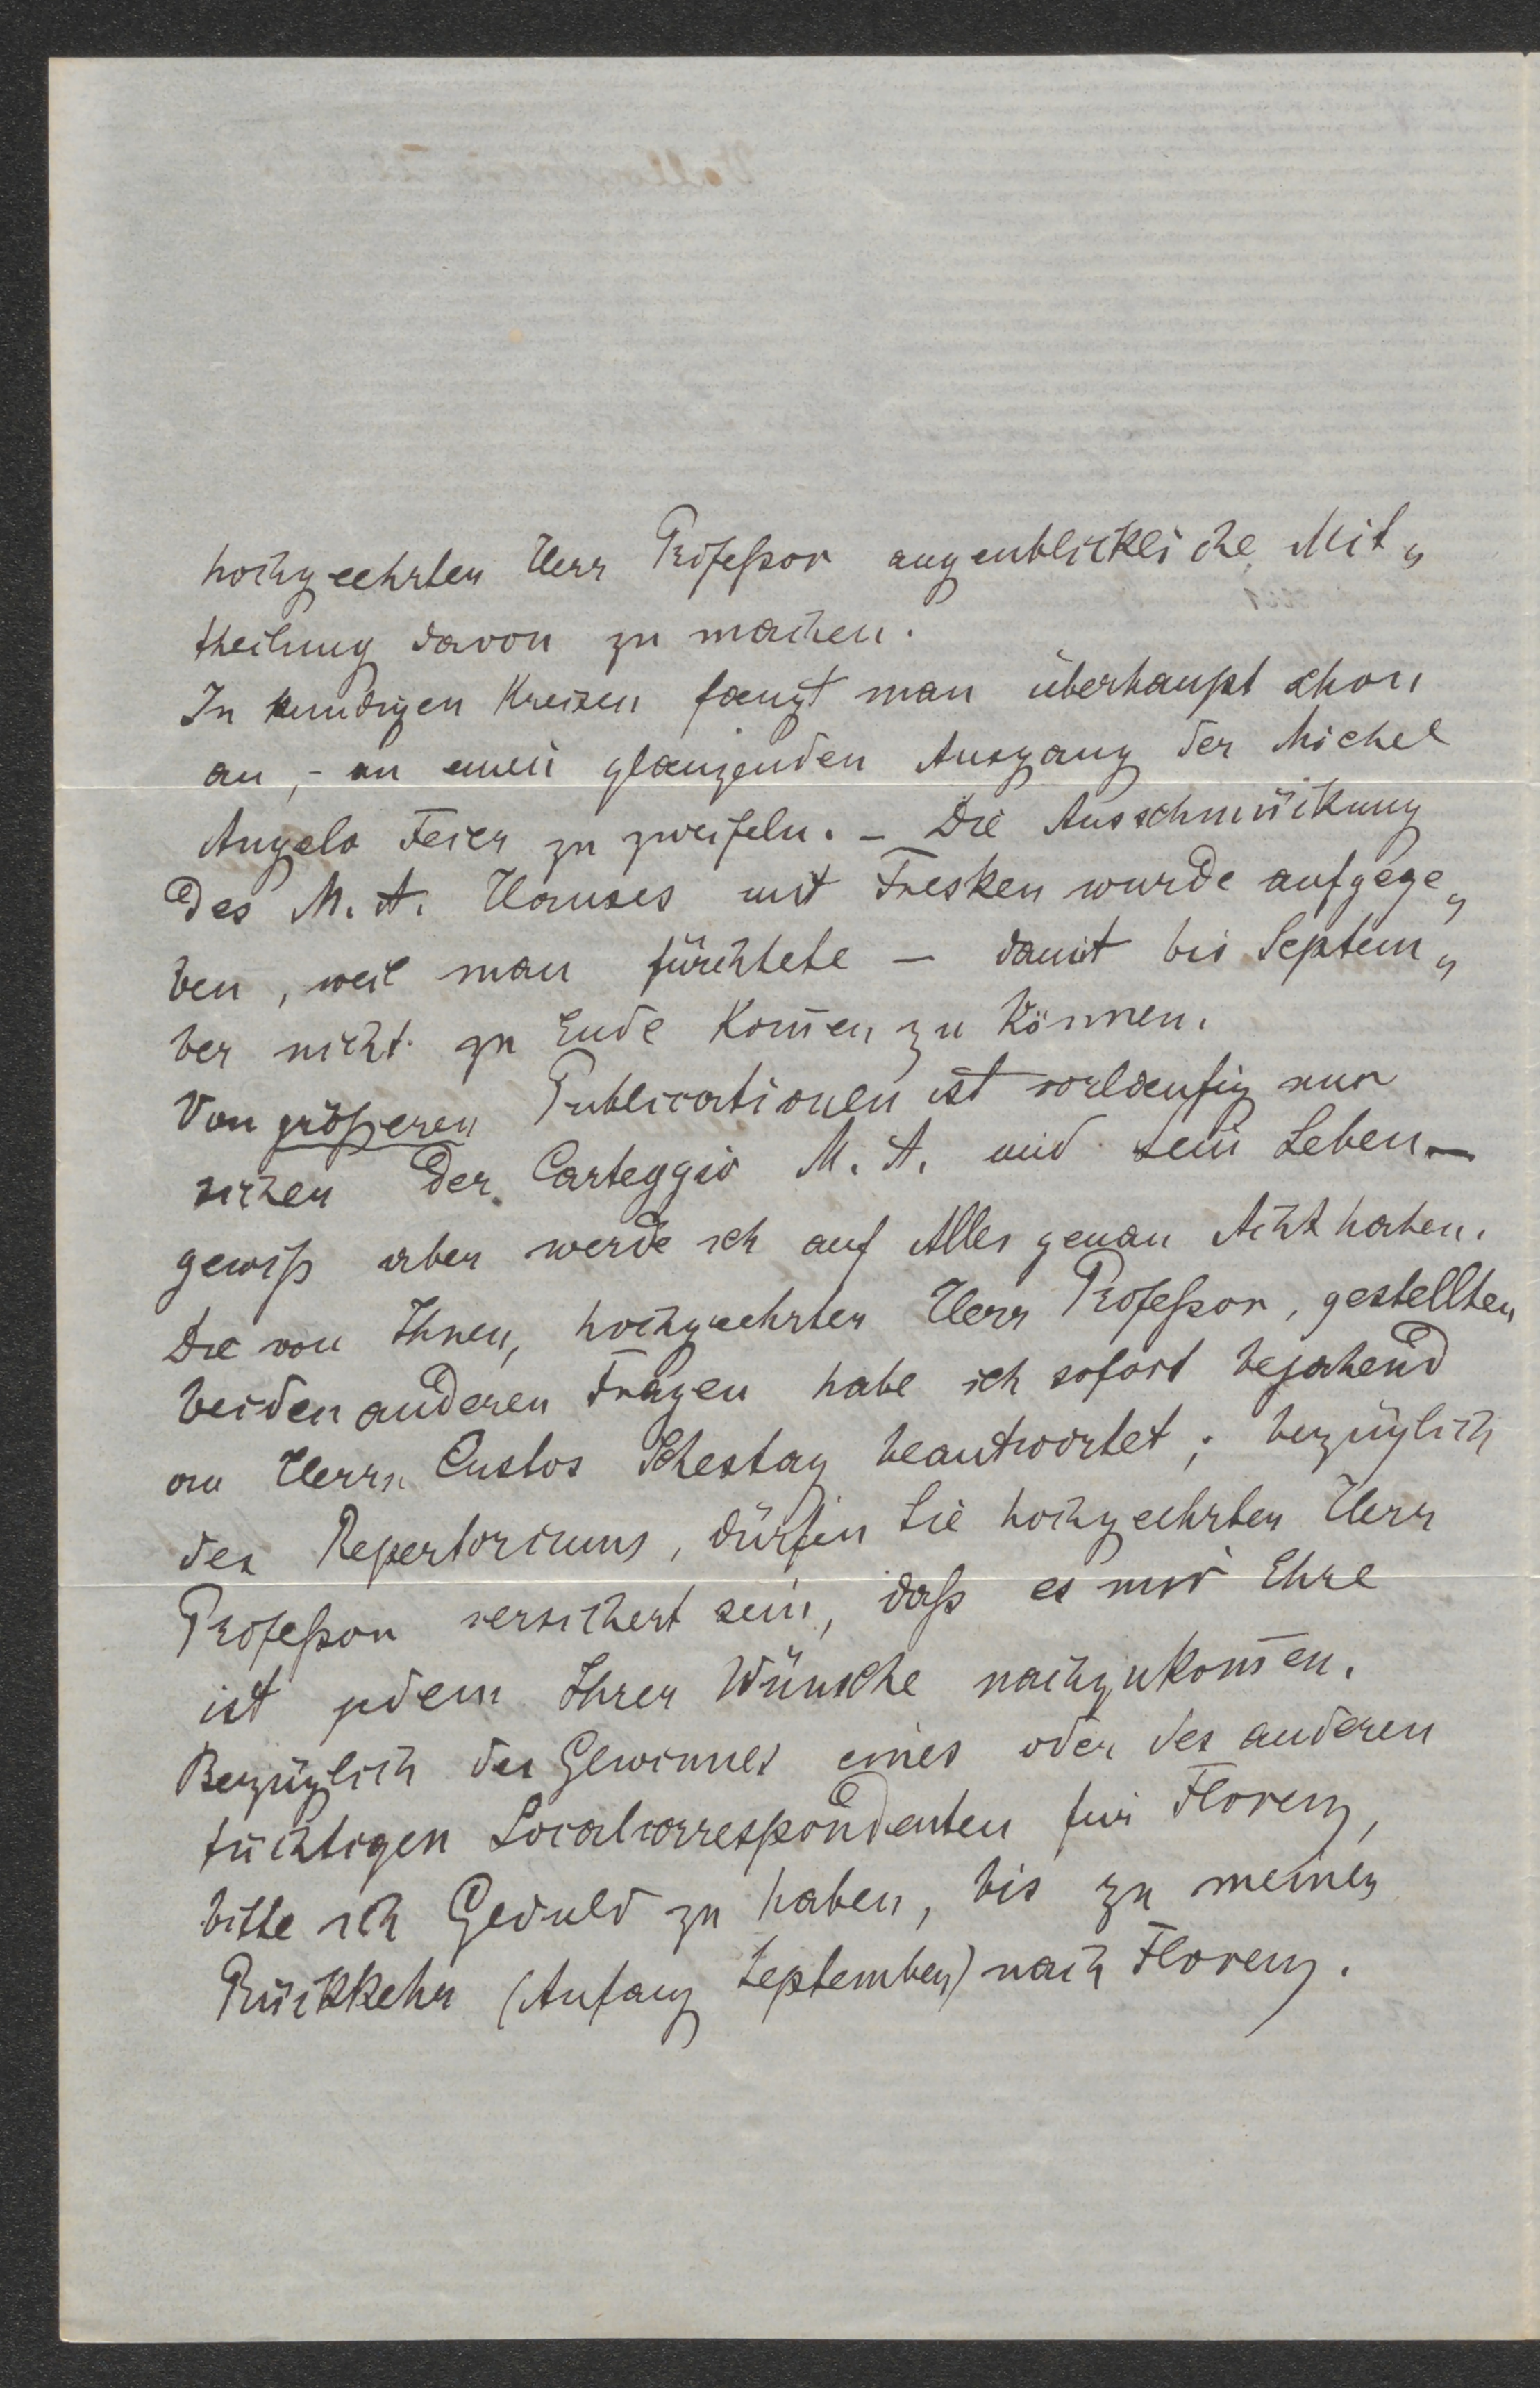 hochgeehrter Herr Profeßor augenblickliche Mit„
theilung davon zu machen.
In kundigen Kreisen faengt man überhaupt schon
an, - an einen glaenzenden Ausgang der Michel
Angelo Feier zu zweifeln. – Die Ausschmückung
des M. A. Hauses mit Fresken wurde aufgege„
ben, weil man fürchtete – damit bis Septem„
ber nicht zu Ende kom̄en zu können.
Von größeren Publicationen ist vorlaeufig nur
sicher der Carteggio M. A. und sein Leben –
gewiß aber werde ich auf Alles genau Acht haben.
Die von Ihnen, hochgeehrter Herr Profeßor, gestellten
beiden anderen Fragen habe ich sofort bejahend
an Herrn Custos Schestag beantwortet; bezüglich
des Repertoriums, dürfen Sie hochgeehrter Herr
Profeßor versichert sein, daß es mir Ehre
ist jedem Ihrer Wünsche nachzukom̄en.
Bezüglich des Gewinnes eines oder des anderen
tüchtigen Localcorrespondenten für Florenz,
bitte ich Geduld zu haben, bis zu meiner
Rückkehr (Anfang September) nach Florenz.